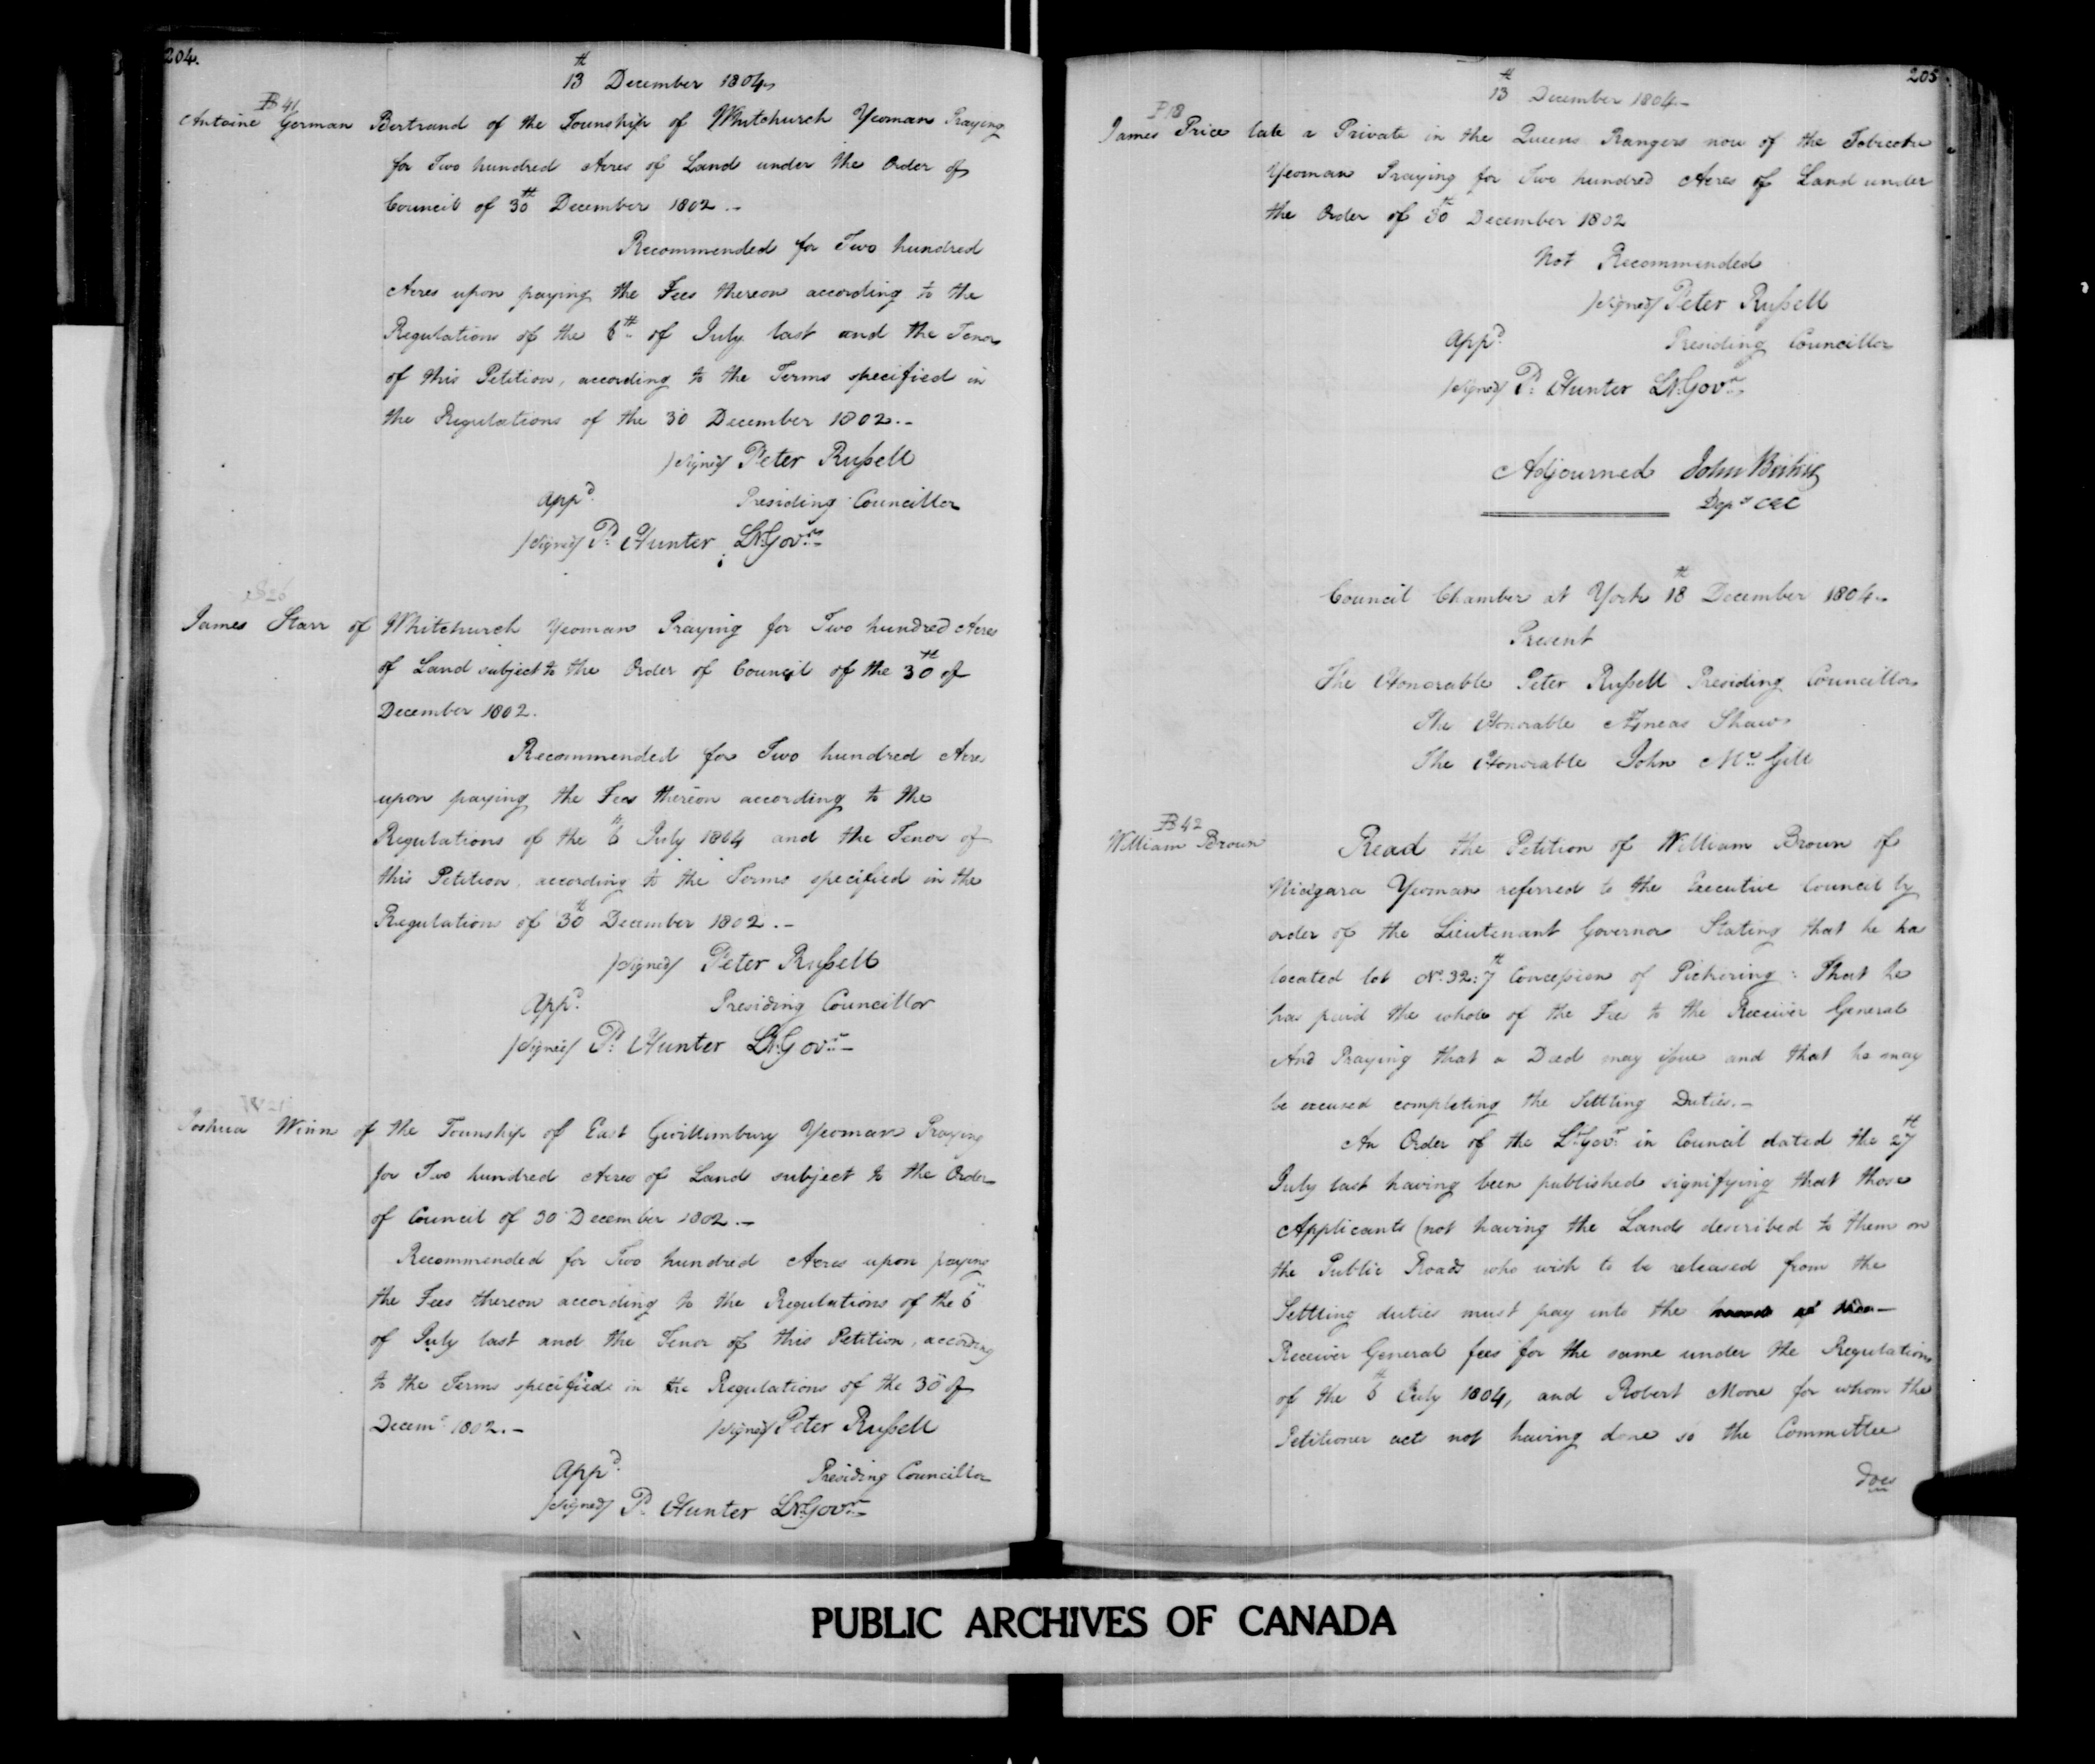 204.
13th December 1804
B 41
Antoine Gorman Bertrand of the Township of Whitchurch Yeoman Praying
for Two hundred Acres of Land under the Order of
Council of 30th December 1802 .-
Recommended for Two hundred
Acres upon paying the Fees thereon according to the
Regulation of the 6th of July last and the Tenor
of this Petition, according to the Terms specified in
the Regulations of the 30 December 1802 .-
/signed/ Peter Rufsell
Appd. Presiding Councillor
/signed/ P. Hunter Lt. Govr.
S 26
James Starr of Whitchurch Yeoman Praying for Two hundred Acres
of Land subject to the Order of Council of the 30th of
December 1802.
Recommended for Two hundred Acres
upon paying the Fees thereon according to the
Regulations of the 6th July 1804 and the Tenor of
this Petition, according to the Terms specified in the
Regulation of 30th December 1802 .-
/signed/ Peter Rufsell
Appd. Presiding Councillor
/signed/ P. Hunter Lt. Govr. -
Joshua Winn of the Township of East Gwillimbury Yeoman Praying
for Two hundred Acres of Land subject to the Order
of Council of 30 December 1802 .-
Recommended for Two hundred Acres upon paying
the Fees thereon according to the Regulations of the 6th
of July last and the Tenor of this Petition, according
to the Terms specified in the Regulations of the 30 of
Decemr. 1802 .- /signed/ Peter Rufsell
Appd. Presiding Councillor
/signed/ P. Hunter Lt. Govr.
205
13th December 1804 -
P 18
James Price late a Private in the Queens Rangers now of the Tobicoke
Yeoman Praying for Two hundred Acres of Land under
the Order of 30th December 1802
Not Recommended
/signed/ Peter Rufsell
Appd. Presiding Councillor
/signed/ P. Hunter Lt. Govr.
Adjourned John Beikie
Depy CEC
Council Chamber at York 18th December 1804 -
Present
The Honorable Peter Rufsell Presiding Councillor
The Honorable Æneas Shaw
The Honorable John Mc Gill
B 42
William Brown Read the Petition of William Brown of
Niagara Yeoman referred to the Executive Council by
order of the Lieutenant Governor Stating that he ha
located lot No. 32: 7th Concefsion of Pickering : That he
has paid the whole of the Fee to the Receiver General
And Praying that a Deed may ifsue and that he may
be excused completing the Settling Duties. -
An Order of the Lt. Govr. in Council dated the 27th
July last having been published signifying that those
Applicants (not having the Lands described to them on
the Public Roads who wish to be released from the
Settling duties must pay into the
Receiver General fees for the same under the Regulations
of the 6th July 1804, and Robert Moore for whom the
Petitioner acts not having done so the Committee
does
PUBLIC ARCHIVES OF CANADA